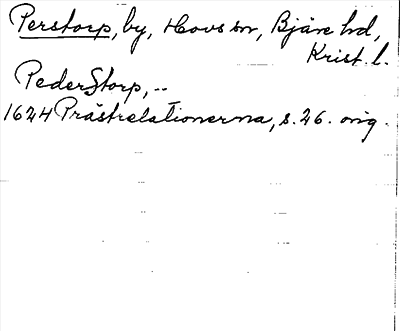 Perstorp, by, Hovs sn, Bjäre hd,
Krist. l.
PederStorp, --
1624 Prästrelationerna, s. 26. orig.